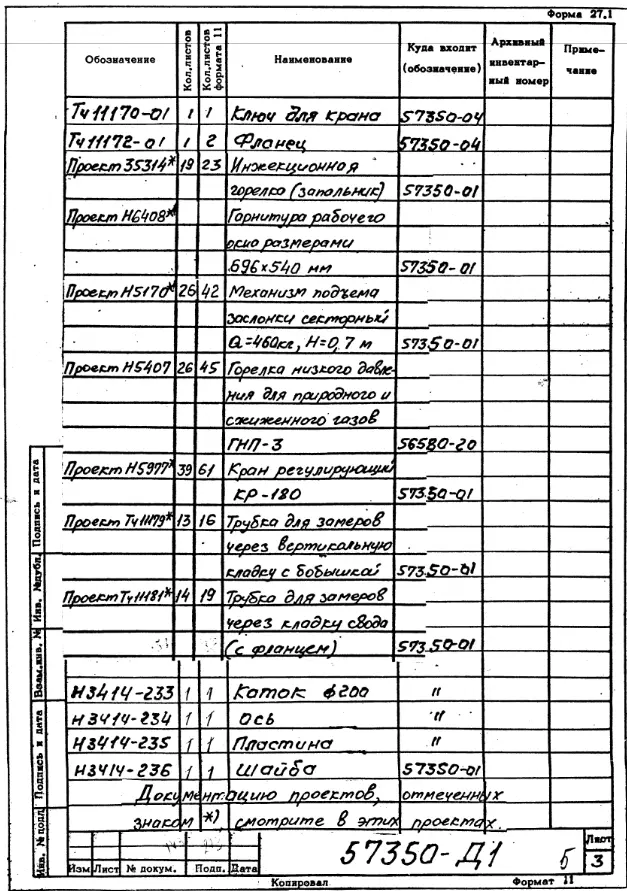 Форма 27.1
Обозначение Кол.листов Кол.листов формата 11 Наименование Куда входит (обозначение) Архивный инвентарный номер Примечание
Тч11170-01 1 1 Ключ для крана 57350-04
Тч11172-01 1 2 Фланец 57350-04
Проект 35314* 19 23 Инжекционная
горелка (запальник) 57350-01
Проект Н6408* Гарнитура рабочего
окна размерами
696×540 мм 57350-01
Проект Н5170* 26 42 Механизм подъема
заслонки секторный
Q=460кг, H=0,7 м 57350-01
Проект Н5407 26 45 Горелка низкого давле-
ния для природного и
сжиженного газов
ГНП-3 56580-20
Проект Н5977* 39 61 Кран регулирующий
КР-180 57350-01
Проект Тч11179* 13 16 Трубка для замеров
через вертикальную
кладку с бобышкой 57350-01
Проект Тч11181* 14 19 Трубка для замеров
через кладку свода
(с фланцем) 57350-01
Н3414-233 1 1 Каток ф200 "
Н3414-234 1 1 Ось "
Н3414-235 1 1 Пластина "
Н3414-236 1 1 Шайба 57350-01
Документацию проектов, отмеченных
знаком *) смотрите в этих проектах.
Инв. № подл. Подпись и дата Взам.инв. № Инв. № дубл. Подпись и дата
57350-Д1
Б
Лист
3
Изм Лист № докум. Подп. Дата
Копировал Формат 11